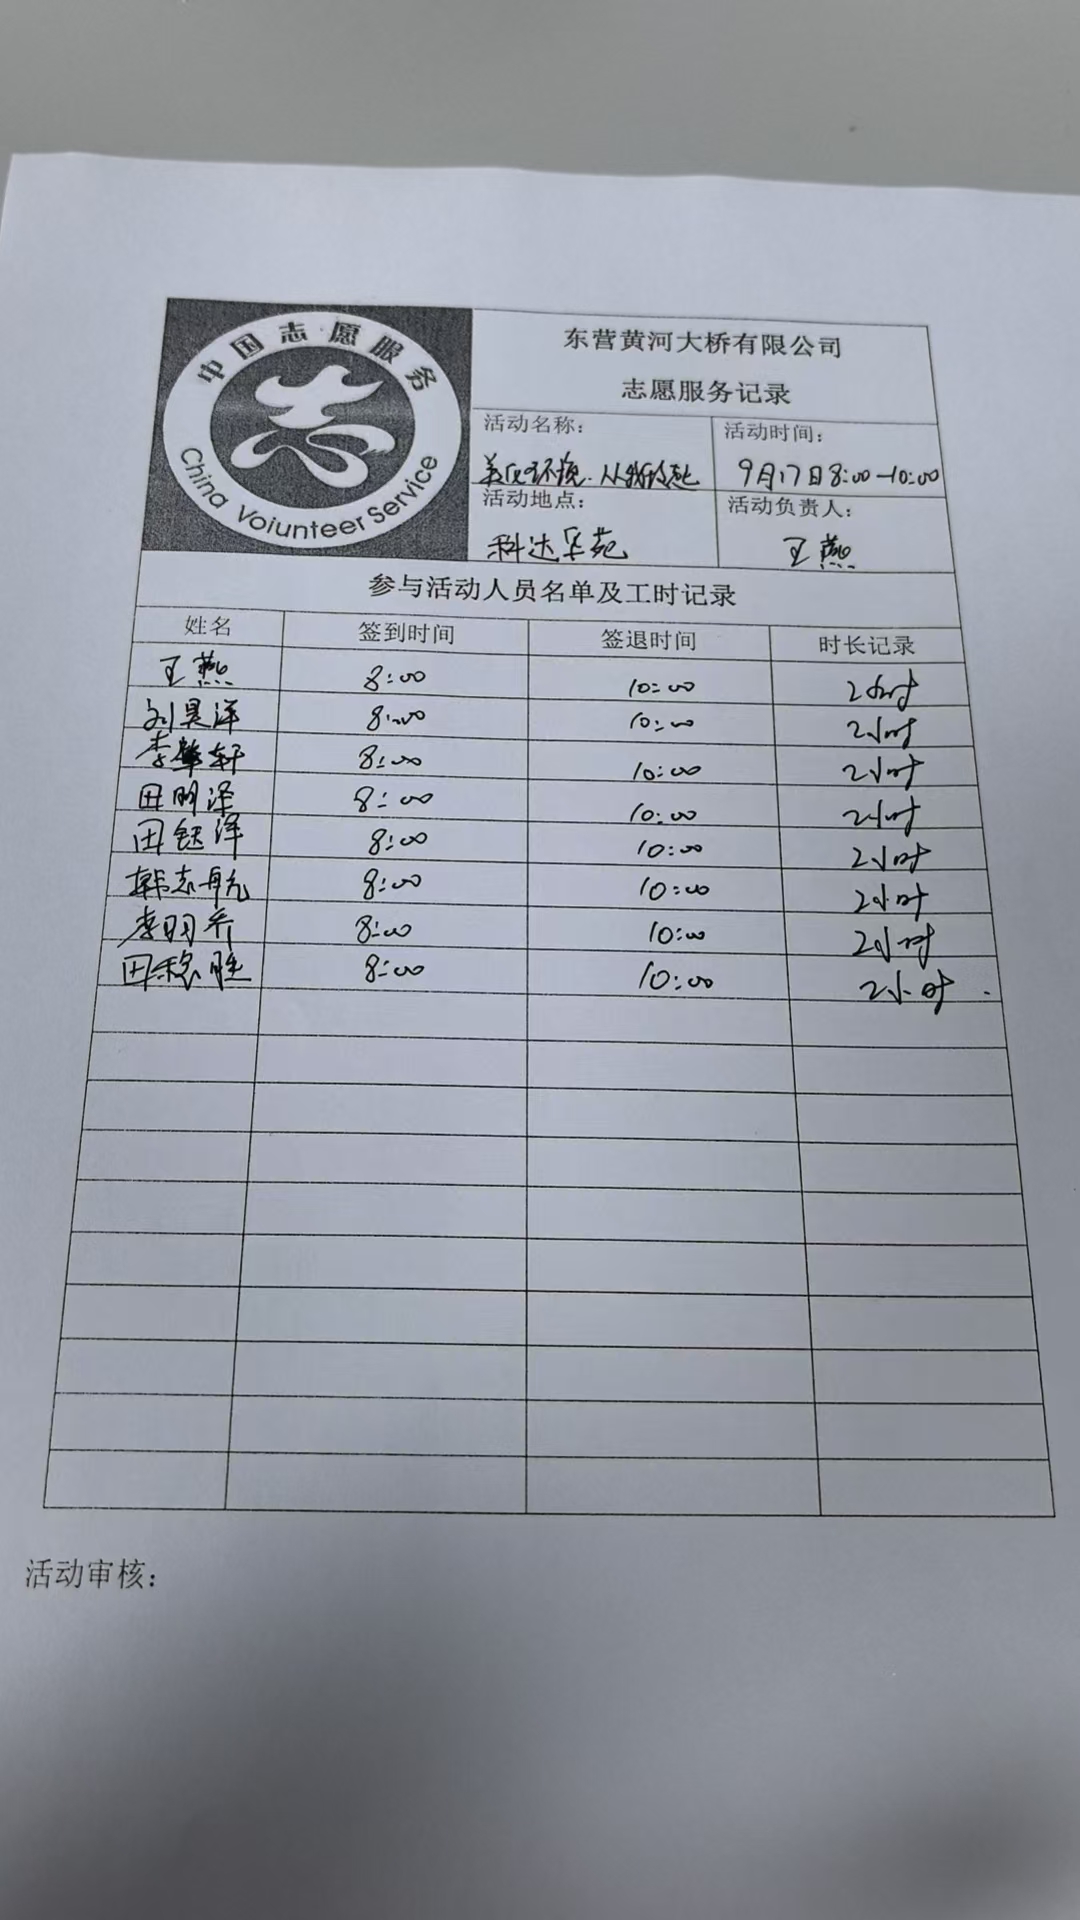 中国志愿服务
China Voiunteer Service
东营黄河大桥有限公司
志愿服务记录
活动名称：
美化环境.从我做起
活动时间：
9月17日8:00-10:00
活动地点：
科达华苑
活动负责人：
王燕
参与活动人员名单及工时记录
姓名 签到时间 签退时间 时长记录
王燕 8:00 10:00 2小时
刘昊洋 8:00 10:00 2小时
李肇轩 8:00 10:00 2小时
田明泽 8:00 10:00 2小时
田钰泽 8:00 10:00 2小时
韩志航 8:00 10:00 2小时
李明乔 8:00 10:00 2小时
田稳胜 8:00 10:00 2小时
活动审核：